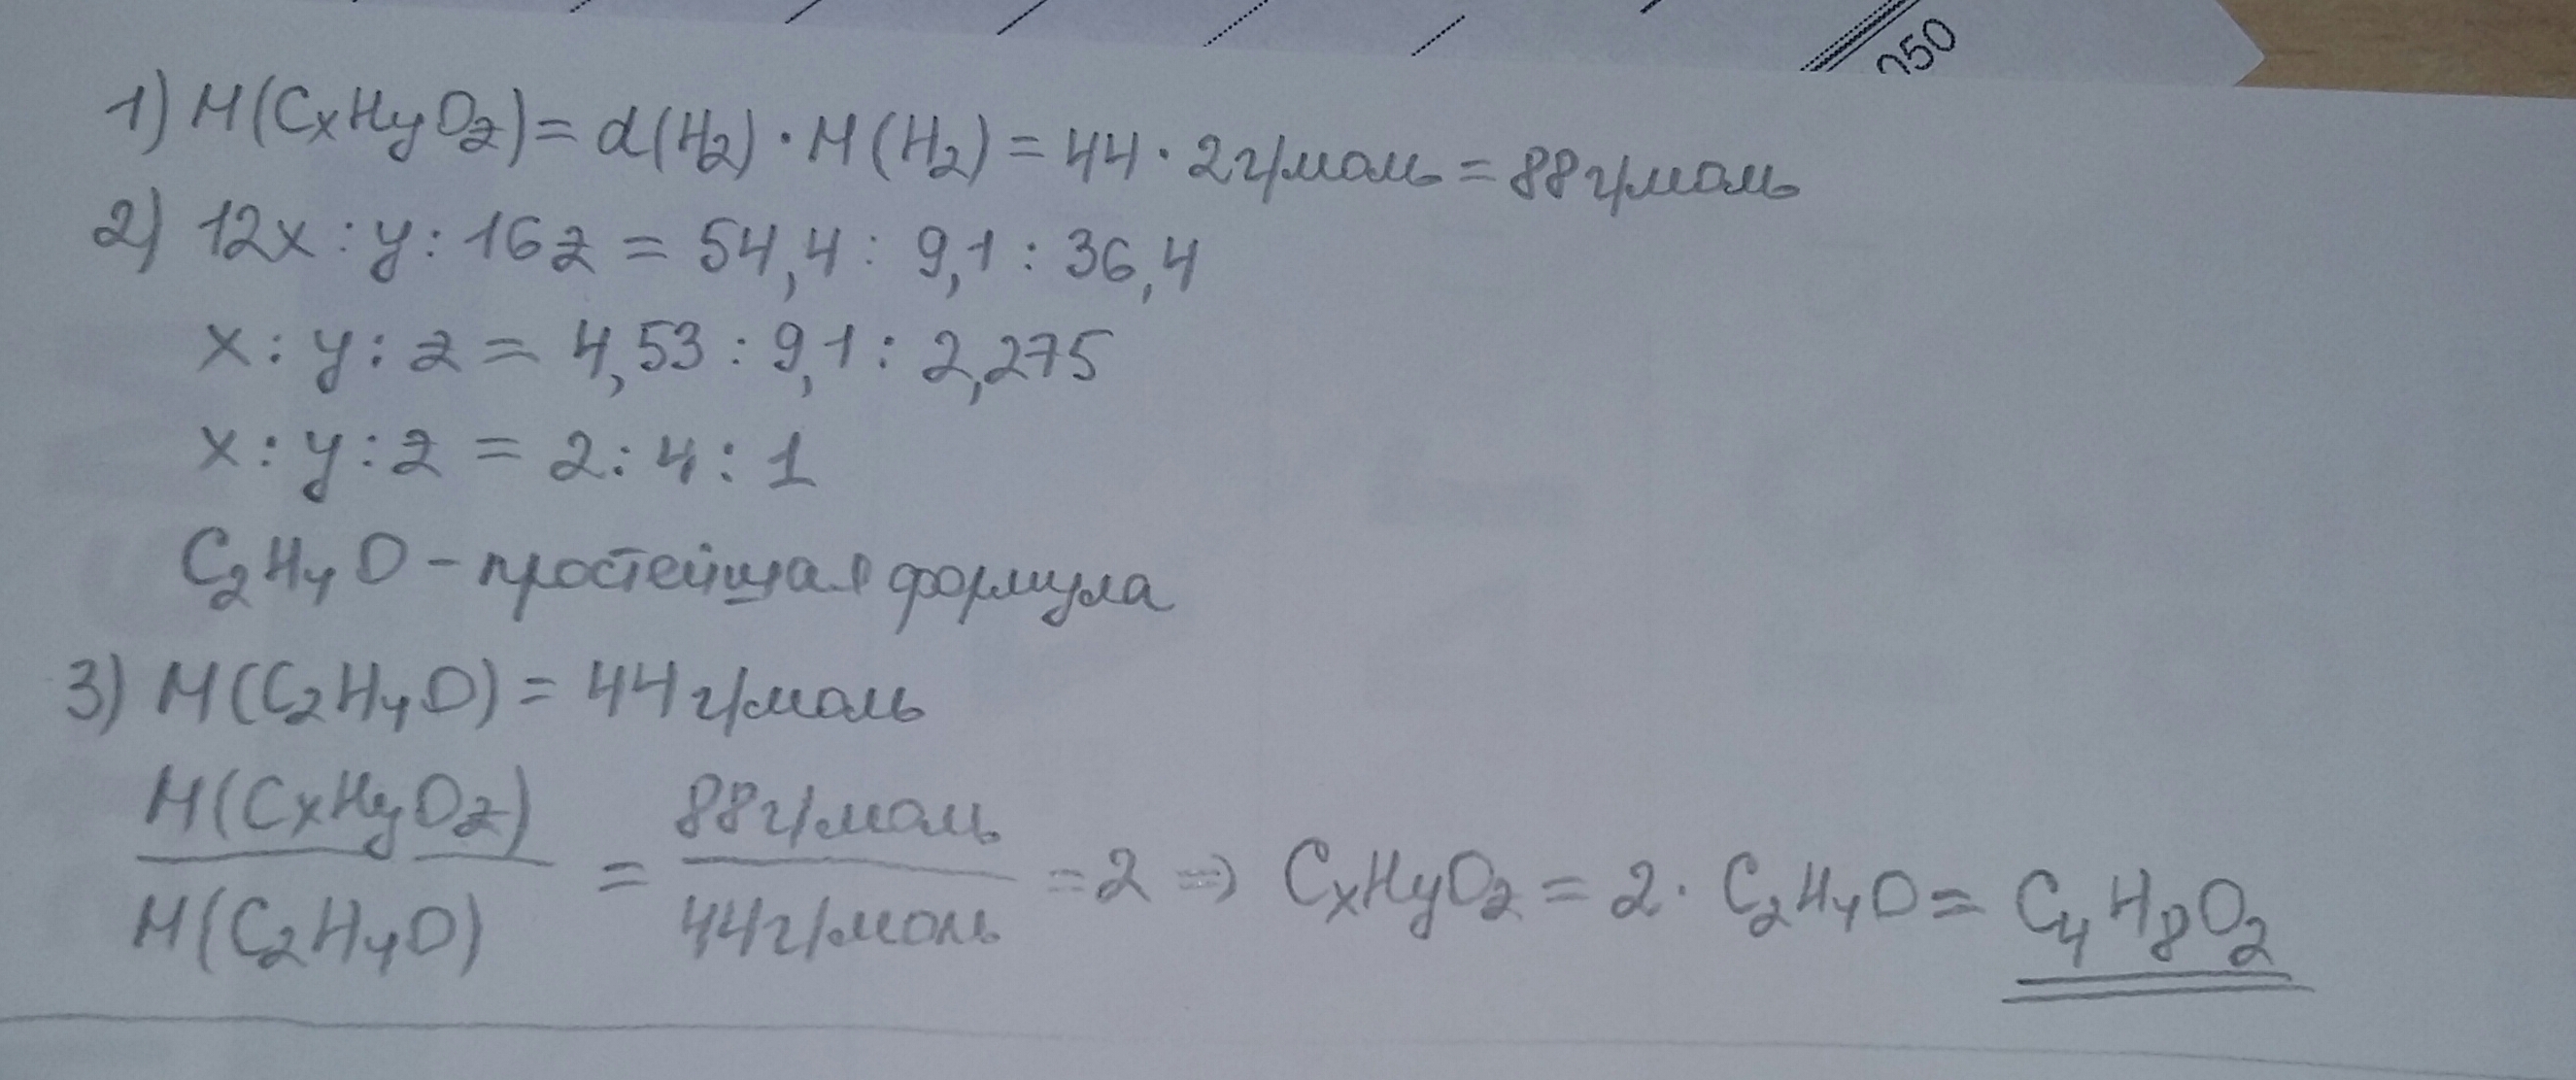 050
1) M(CxHyOz) = d(H₂) · M(H₂) = 44 · 2г/моль = 88г/моль
2) 12x : y : 16z = 54,4 : 9,1 : 36,4
x : y : z = 4,53 : 9,1 : 2,275
x : y : z = 2 : 4 : 1
C₂H₄O - простейшая формула
3) M(C₂H₄O) = 44г/моль
M(CxHyOz) / M(C₂H₄O) = 88г/моль / 44г/моль = 2 ⇒ CxHyOz = 2 · C₂H₄O = C₄H₈O₂